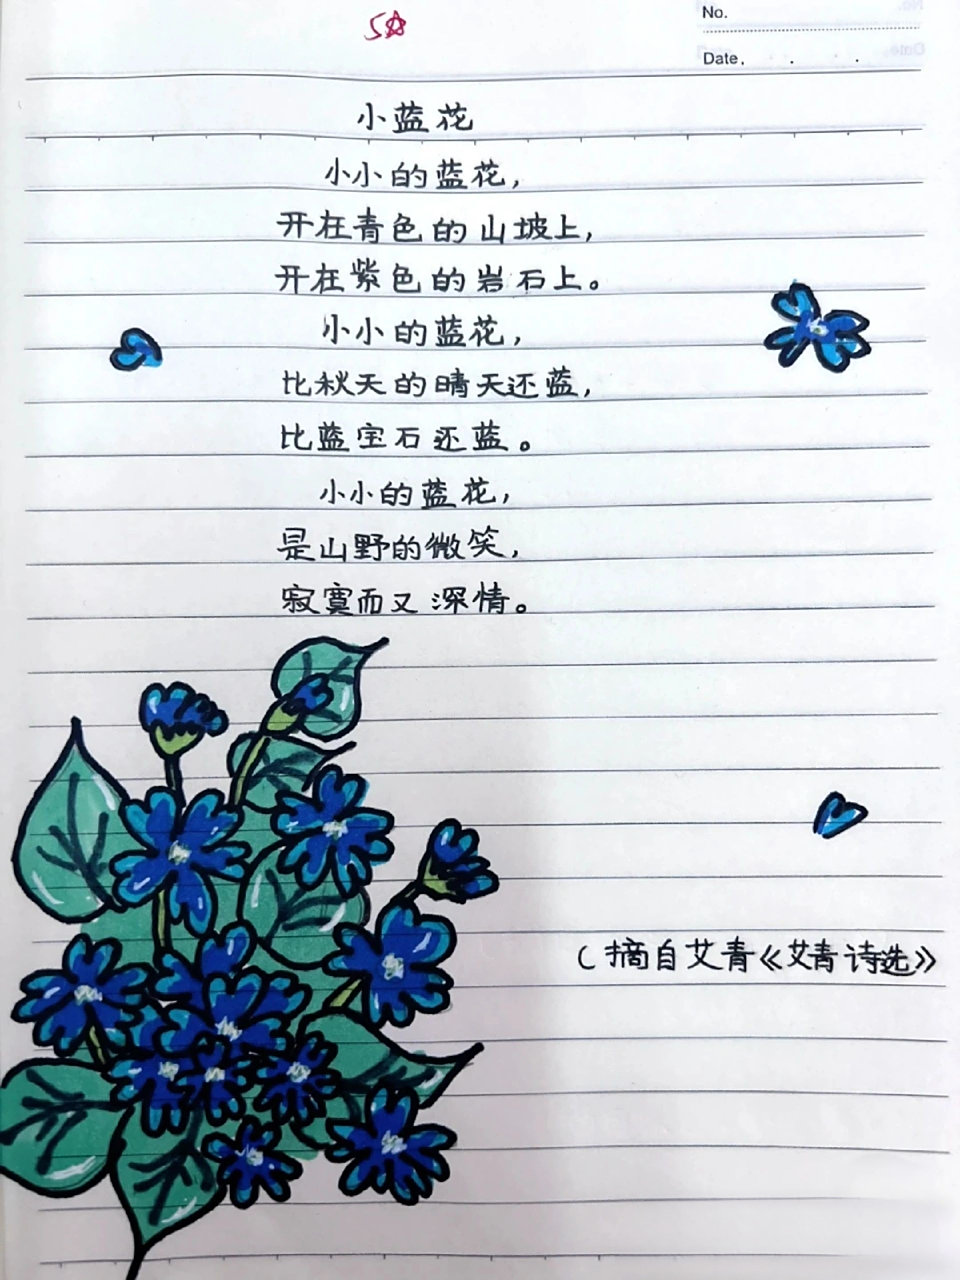 5☆
No.
Date. . .
小蓝花
小小的蓝花，
开在青色的山坡上，
开在紫色的岩石上。
小小的蓝花，
比秋天的晴天还蓝，
比蓝宝石还蓝。
小小的蓝花，
是山野的微笑，
寂寞而又深情。
（摘自艾青《艾青诗选》